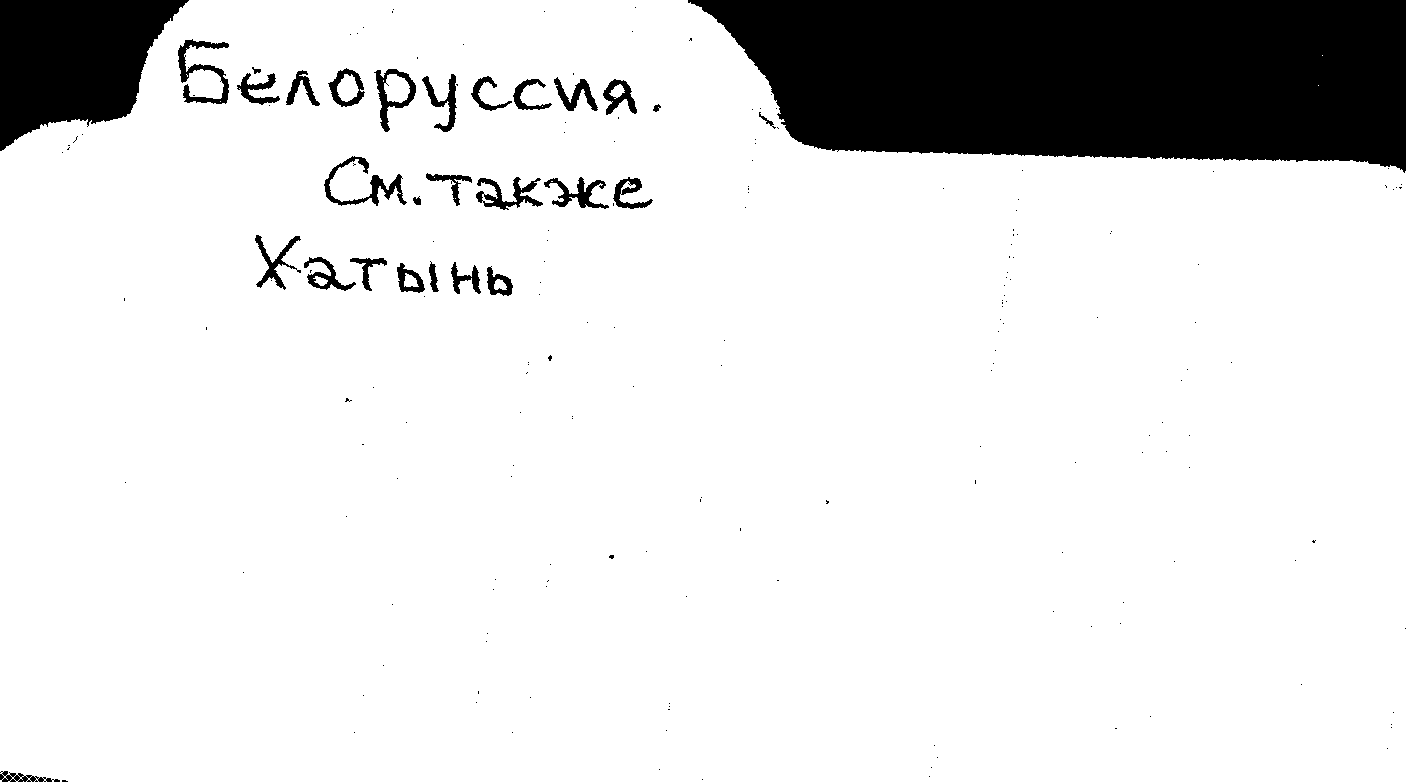 Белоруссия.
См. также
Хатынь